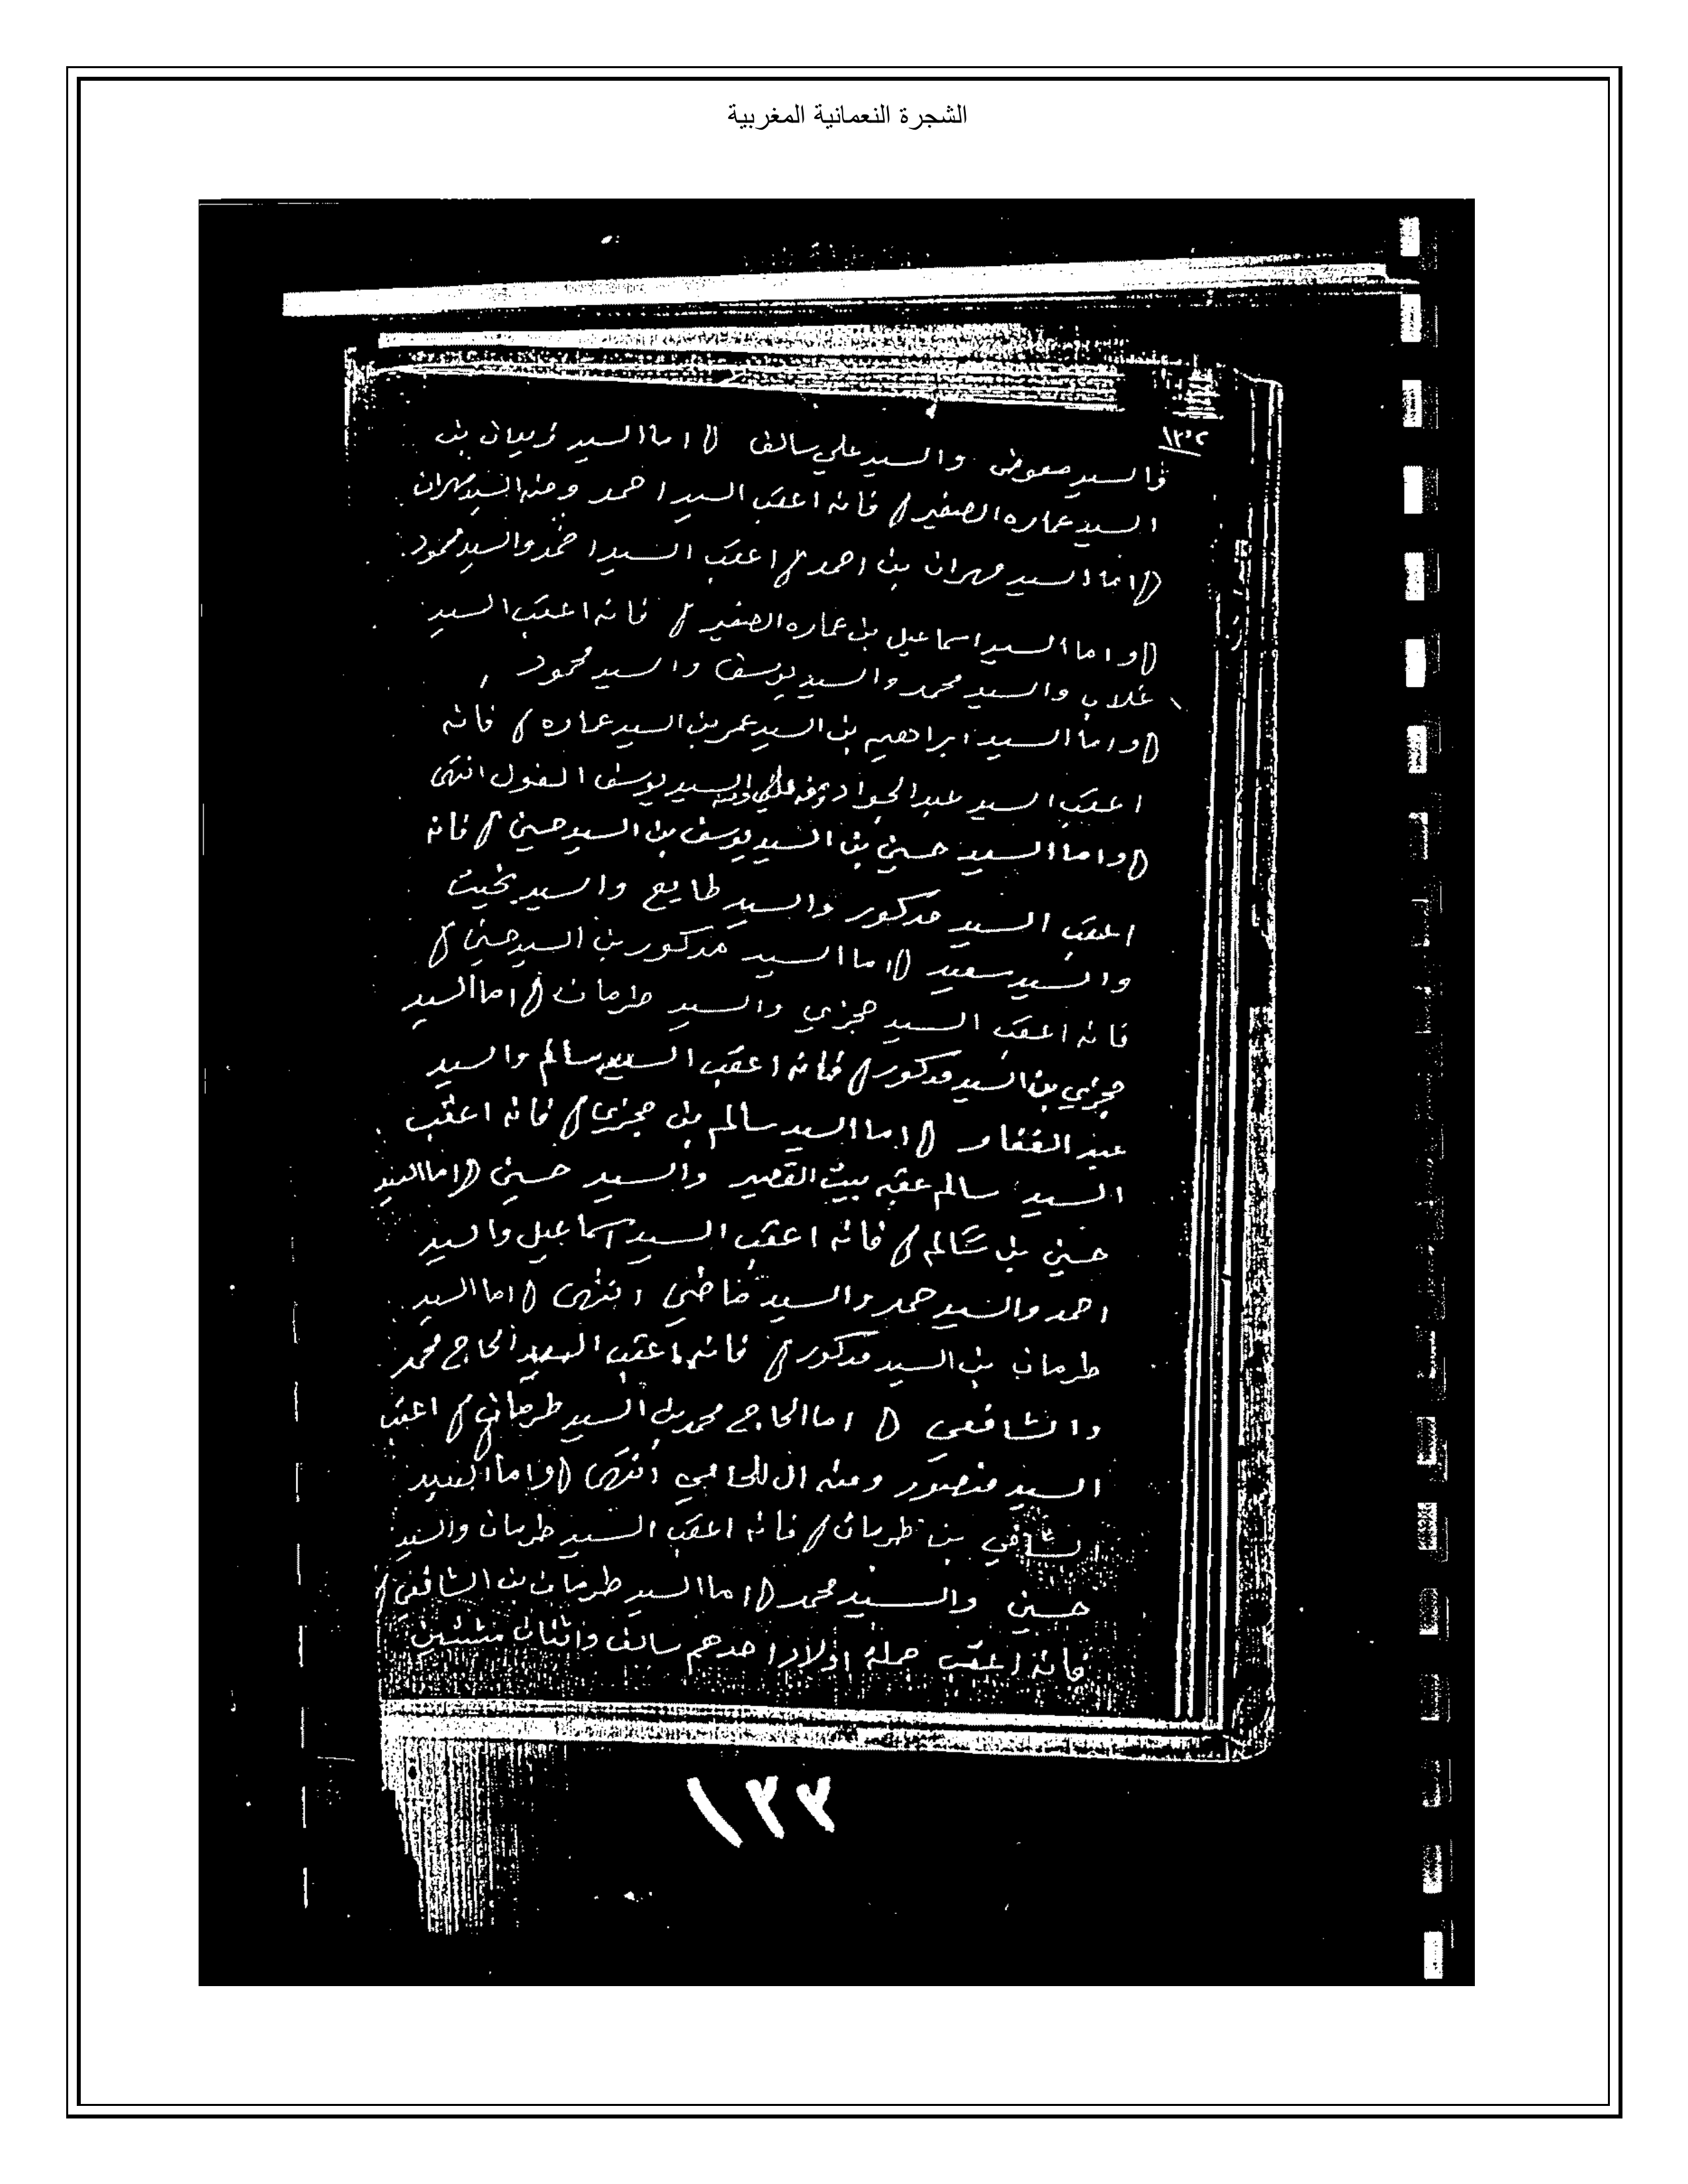 الشجرة النعمانية المغربية
١٣٢
والسيد معوض والسيد علي سالف اما السيد بن
السيد عماره الصغير فانه اعقب السيد احمد ومنه السيد مهران
اما السيد مهران بن احمد اعقب السيد احمد والسيد محمود
واما السيد اسماعيل بن عماره الصغير فانه اعقب السيد
غلاب والسيد محمد والسيد يوسف والسيد محمود
واما السيد ابراهيم بن السيد عمر بن السيد عماره فانه
اعقب السيد عبد الجواد السيد يوسف الفول انتهى
واما السيد حسين بن السيد يوسف بن السيد حسين فانه
اعقب السيد مدكور والسيد طايع والسيد بخيت
والسيد سعيد اما السيد مدكور بن السيد حسين
فانه اعقب السيد حجزي والسيد طرمان اما السيد
حجزي بن السيد مدكور فانه اعقب السيد سالم والسيد
عبد الغفار اما السيد سالم بن حجزي فانه اعقب
السيد سالم عقبه ببيت القصير والسيد حسين اما السيد
حسين بن سالم فانه اعقب السيد اسماعيل والسيد
احمد والسيد حمد والسيد انتهى اما السيد
طرمان بن السيد مدكور فانه اعقب السيد الحاج محمد
والشافعي اما الحاج محمد بن السيد طرمان اعقب
السيد منصور ومنه ال انتهى واما السيد
الشافعي بن طرمان فانه اعقب السيد طرمان والسيد
حسين والسيد محمد اما السيد طرمان بن الشافعي
فانه اعقب جملة اولاد احدهم سالف واثنان
١٣٣